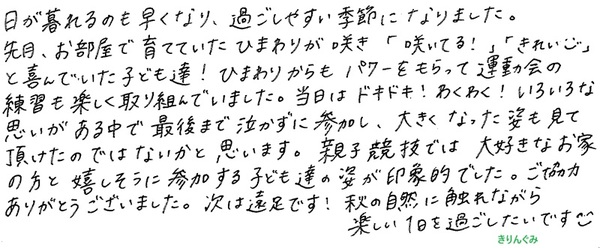 日が暮れるのも早くなり、過ごしやすい季節になりました。
先月、お部屋で育てていたひまわりが咲き「咲いてる！」「きれい〜」
と喜んでいた子ども達！ひまわりからもパワーをもらって運動会の
練習も楽しく取り組んでいました。当日はドキドキ！わくわく！いろいろな
思いがある中で最後まで泣かずに参加し、大きくなった姿も見て
頂けたのではないかと思います。親子競技では大好きなお家
の方と嬉しそうに参加する子ども達の姿が印象的でした。ご協力
ありがとうございました。次は遠足です！秋の自然に触れながら
楽しい1日を過ごしたいです
きりんぐみ